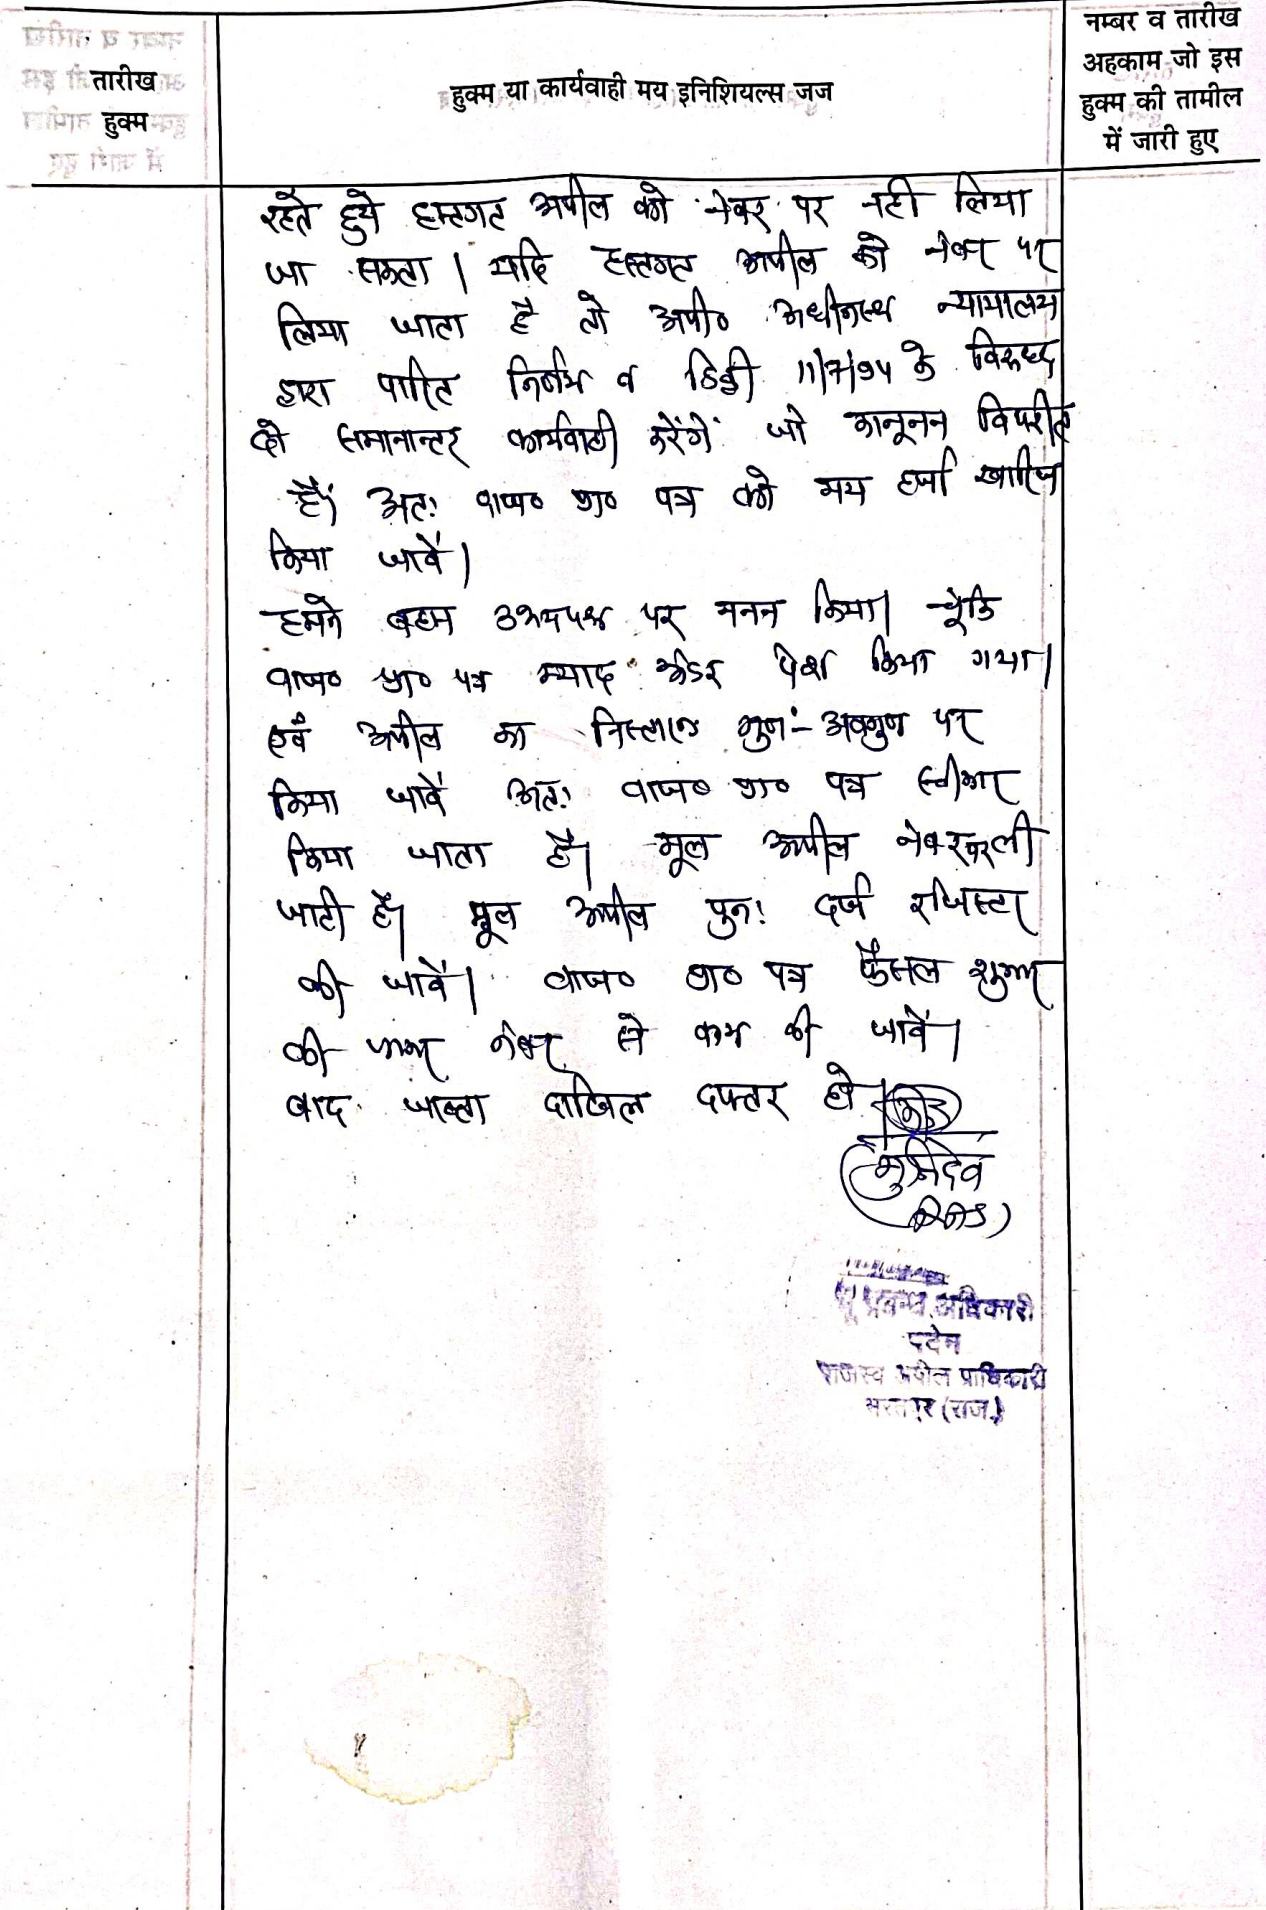 तारीख
हुक्म
हुक्म या कार्यवाही मय इनिशियल्स जज
नम्बर व तारीख
अहकाम जो इस
हुक्म की तामील
में जारी हुए
रहते हुये हस्तगत अपील को नंबर पर नही लिया
जा सकता। यदि हस्तगत अपील को नंबर पर
लिया जाता है तो अपी० अधीनस्थ न्यायालय
द्वारा पारित निर्णय व डिक्री 11/7/94 के विरुध्द
दो समानान्तर कार्यवाही करेंगें जो कानूनन विपरीत
है। अतः वाज० प्रा० पत्र को मय हर्जा खारिज
किया जावें।
हमने बहस उभयपक्ष पर मनन किया। चूंकि
वाज० प्रा० पत्र म्याद अंडर पेश किया गया।
एवं अपील का निस्तारण गुण-अवगुण पर
किया जावें अतः वाज० प्रा० पत्र स्वीकार
किया जाता है। मूल अपील नंबर पर ली
जाती है। मूल अपील पुनः दर्ज रजिस्टर
की जावें। वाज० प्रा० पत्र फैसल शुमार
की जाकर नंबर से कम की जावें।
बाद जाब्ता दाखिल दफ्तर हो।
भू प्रबन्ध अधिकारी
पदेन
राजस्व अपील प्राधिकारी
भरतपुर (राज.)